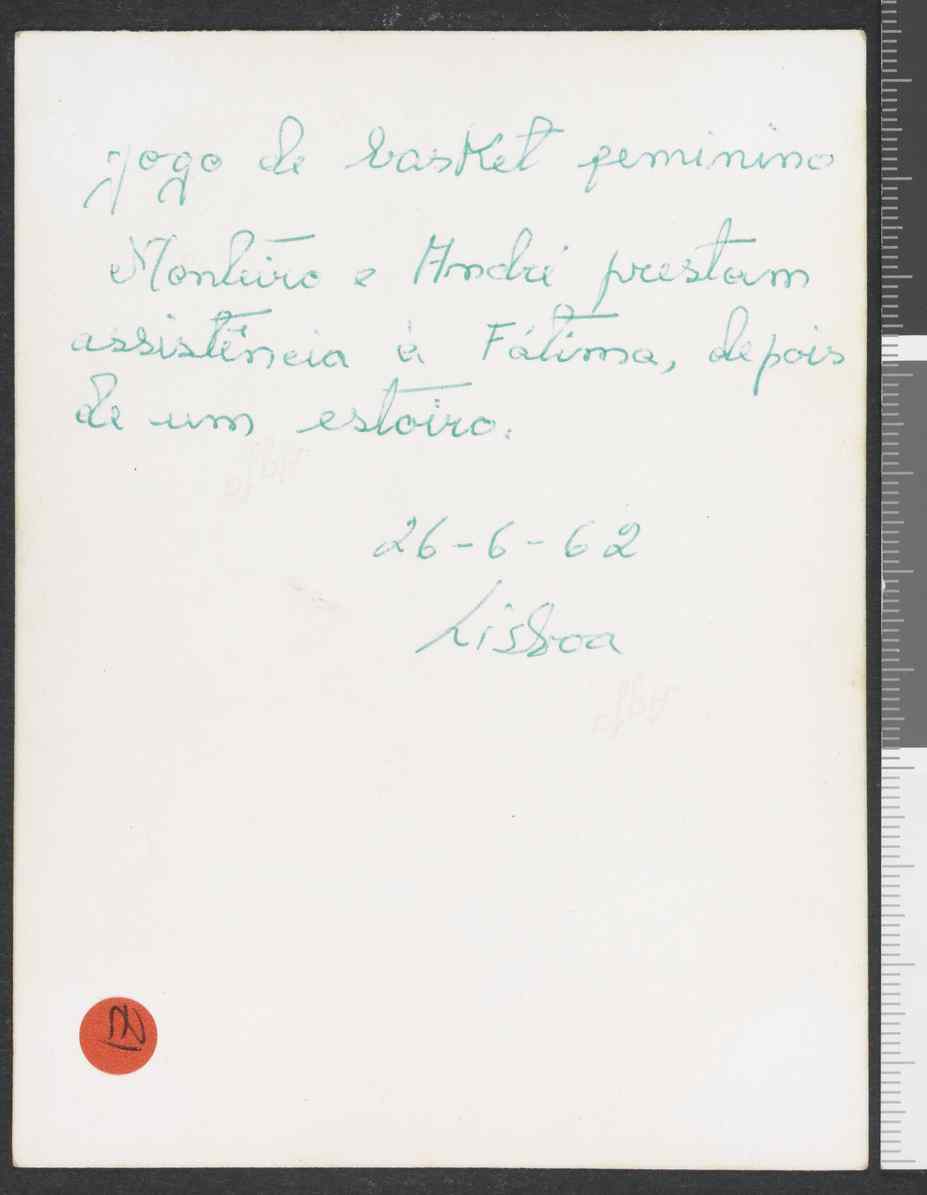 Jogo de basket feminino
Monteiro e André prestam
assistência à Fátima, depois
de um estoiro.
26-6-62
Lisboa
Agfa
Agfa